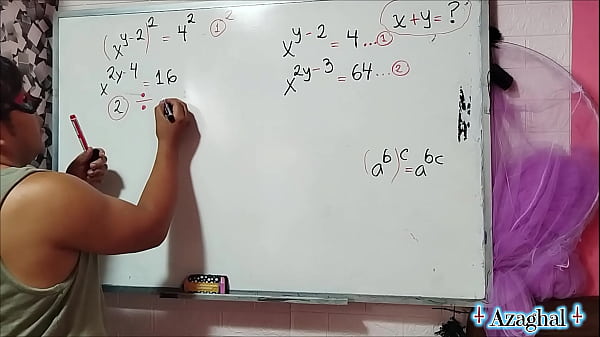 (x^{y-2})^2 = 4^2 ...①^2
x^{2y-4} = 16
② ÷
x^{y-2} = 4 ...①
x^{2y-3} = 64 ...②
x+y=?
(a^b)^c = a^{bc}
Azaghal